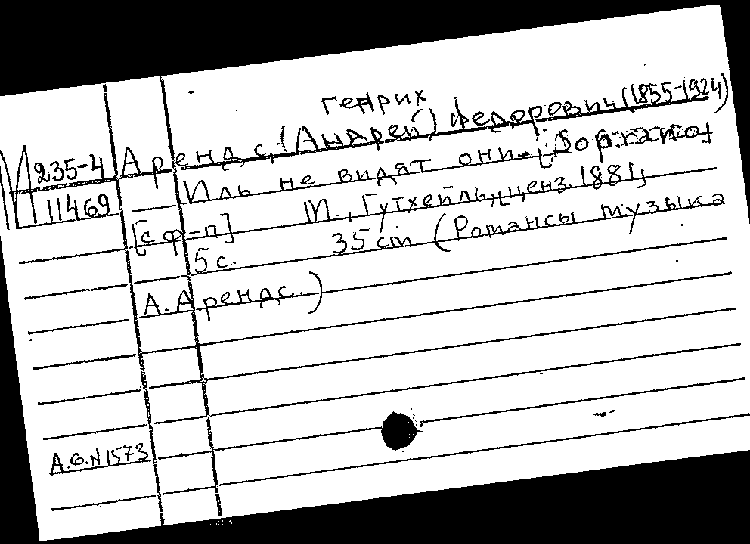 Генрих
М 235-4 Арендс, (Андрей) Федорович (1855-1924)
11469 Иль не видят они. [Soprano]
[с ф-п] М., Гутхейль, ценз. 1881,
5 с. 35 cm (Романсы музыка
А. Арендс.)
А.О.N 1573